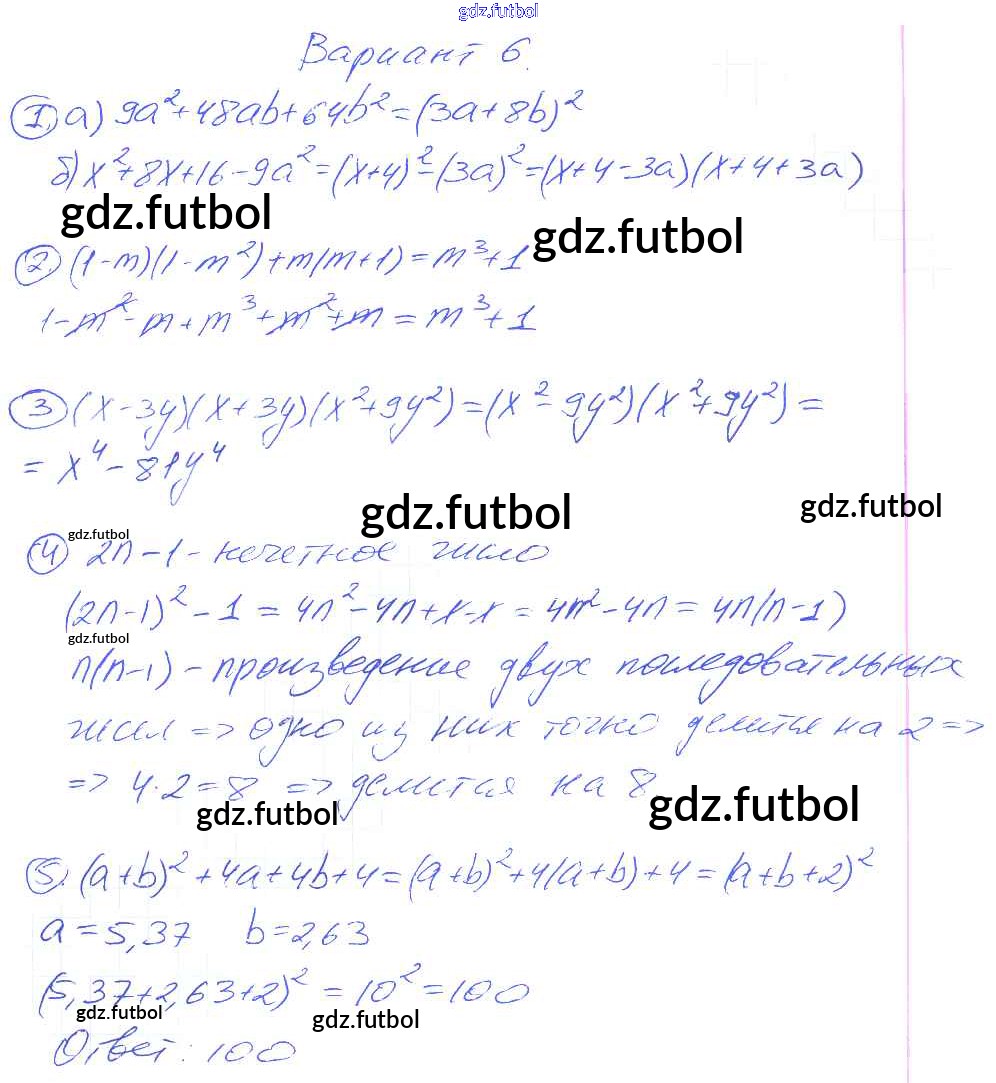 gdz.futbol
Вариант 6.
1. а) 9a²+48ab+64b²=(3a+8b)²
б) x²+8x+16-9a²=(x+4)²-(3a)²=(x+4-3a)(x+4+3a)
gdz.futbol
gdz.futbol
2. (1-m)(1-m²)+m(m+1)=m³+1
1-m²-m+m³+m²+m=m³+1
3 (x-3y)(x+3y)(x²+9y²)=(x²-9y²)(x²+9y²)=
=x⁴-81y⁴
gdz.futbol
gdz.futbol
gdz.futbol
4 2n-1-нечетное число
(2n-1)²-1=4n²-4n+1-1=4n²-4n=4n(n-1)
gdz.futbol
n(n-1)-произведение двух последовательных
чисел => одно из них точно делится на 2 =>
=> 4·2=8 => делится на 8
gdz.futbol
gdz.futbol
5. (a+b)²+4a+4b+4=(a+b)²+4(a+b)+4=(a+b+2)²
a=5,37 b=2,63
(5,37+2,63+2)²=10²=100
gdz.futbol
gdz.futbol
Ответ: 100